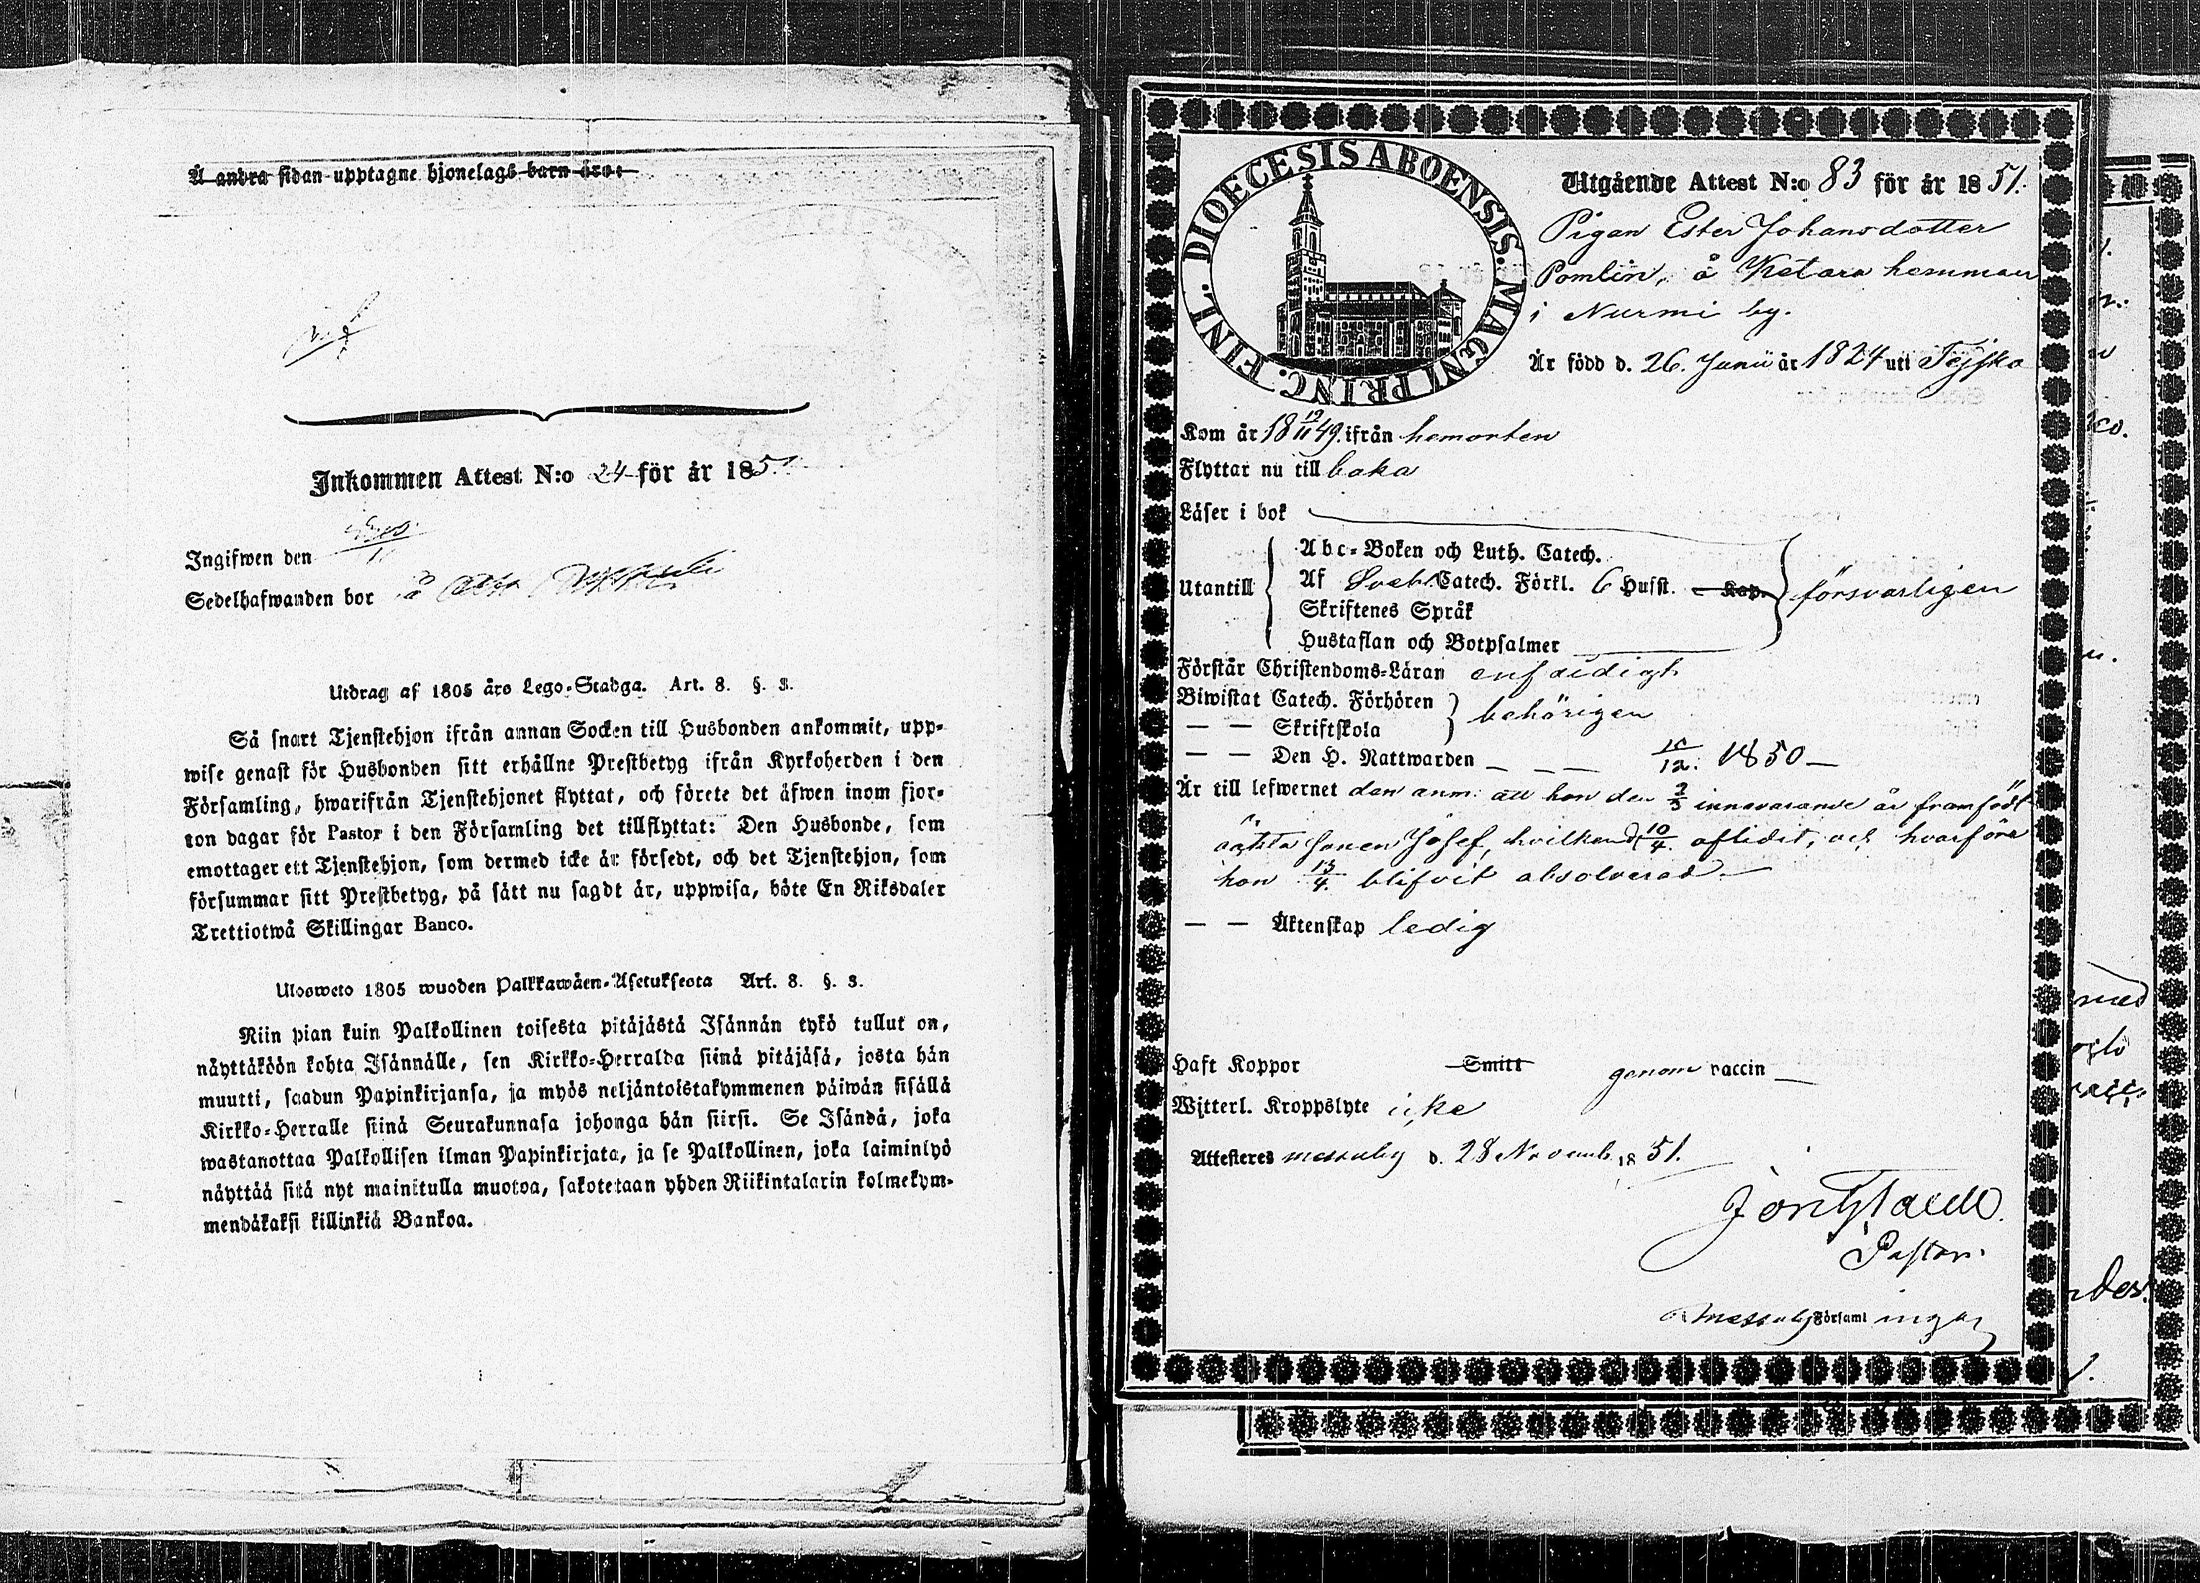 Å andra sidan upptagne hjonelags barn äro:
Inkommen Attest N:o 24 för år 1851.
Ingifwen den
Sedelhafwanden bor å
Utdrag af 1805 års Lego-Stadga. Art. 8. §. 3.
Så snart Tjenstehjon ifrån annan Socken till Husbonden ankommit, upp-
wise genast för Husbonden sitt erhållne Prestbetyg ifrån Kyrkoherden i den
Församling, hwarifrån Tjenstehjonet flyttat, och förete det äfwen inom fjor-
ton dagar för Pastor i den Församling det tillflyttat: Den Husbonde, som
emottager ett Tjenstehjon, som dermed icke är försedt, och det Tjenstehjon, som
försummar sitt Prestbetyg, på sätt nu sagdt är, uppwisa, böte En Riksdaler
Trettiotwå Skillingar Banco.
Ulosweto 1805 wuoden Palkkawäen-Asetuksesta Art. 8. §. 3.
Niin pian kuin Palkollinen toisesta pitäjästä Isännän tykö tullut on,
näyttäköön kohta Isännälle, sen Kirkko-Herralda siinä pitäjäsä, josta hän
muutti, saadun Papinkirjansa, ja myös neljäntoistakymmenen päiwän sisällä
Kirkko-Herralle siinä Seurakunnasa johonga hän siirsi. Se Isändä, joka
wastanottaa Palkollisen ilman Papinkirjata, ja se Palkollinen, joka laiminlyö
näyttää sitä nyt mainitulla muotoa, sakotetaan yhden Riikintalarin kolmekym-
mendäkaksi killinkiä Bankoa.
DIOECESIS ABOENSIS. MAGNI PRINC. FINL.
Utgående Attest N:o 83 för år 1851.
Pigan Ester Johansdotter
Pomlin, å Ketara hemman
i Nurmi by.
Är född d. 26. Junii år 1824 uti Tejsko
Kom år 18 19/11 49. ifrån hemorten
Flyttar nu till baka
Läser i bok
Abc-Boken och Luth. Catech.
Utantill Af Sveb. Catech. Förkl. 6 Hufst. Kap. försvarligen
Skriftenes Språk
Hustaflan och Botpsalmer
Förstår Christendoms-Läran enfaldigt
Biwistat Catech. Förhören behörigen
— — Skriftskola
— — Den H. Nattwarden — — — 15/12. 1850 —
Är till lefwernet den anm. att hon den 3/3 innevarande år framfödt
oäkta sonen Josef, hvilken d. 10/4. aflidit, och hvarföre
hon 13/4 blifvit absolverad.—
— — Äktenskap ledig
Haft Koppor Smitt genom vaccin —
Wjtterl. Kroppslyte icke
Attesteres Messuby d. 28 Novemb. 1851.
Pastor.
Messuby Församlingar